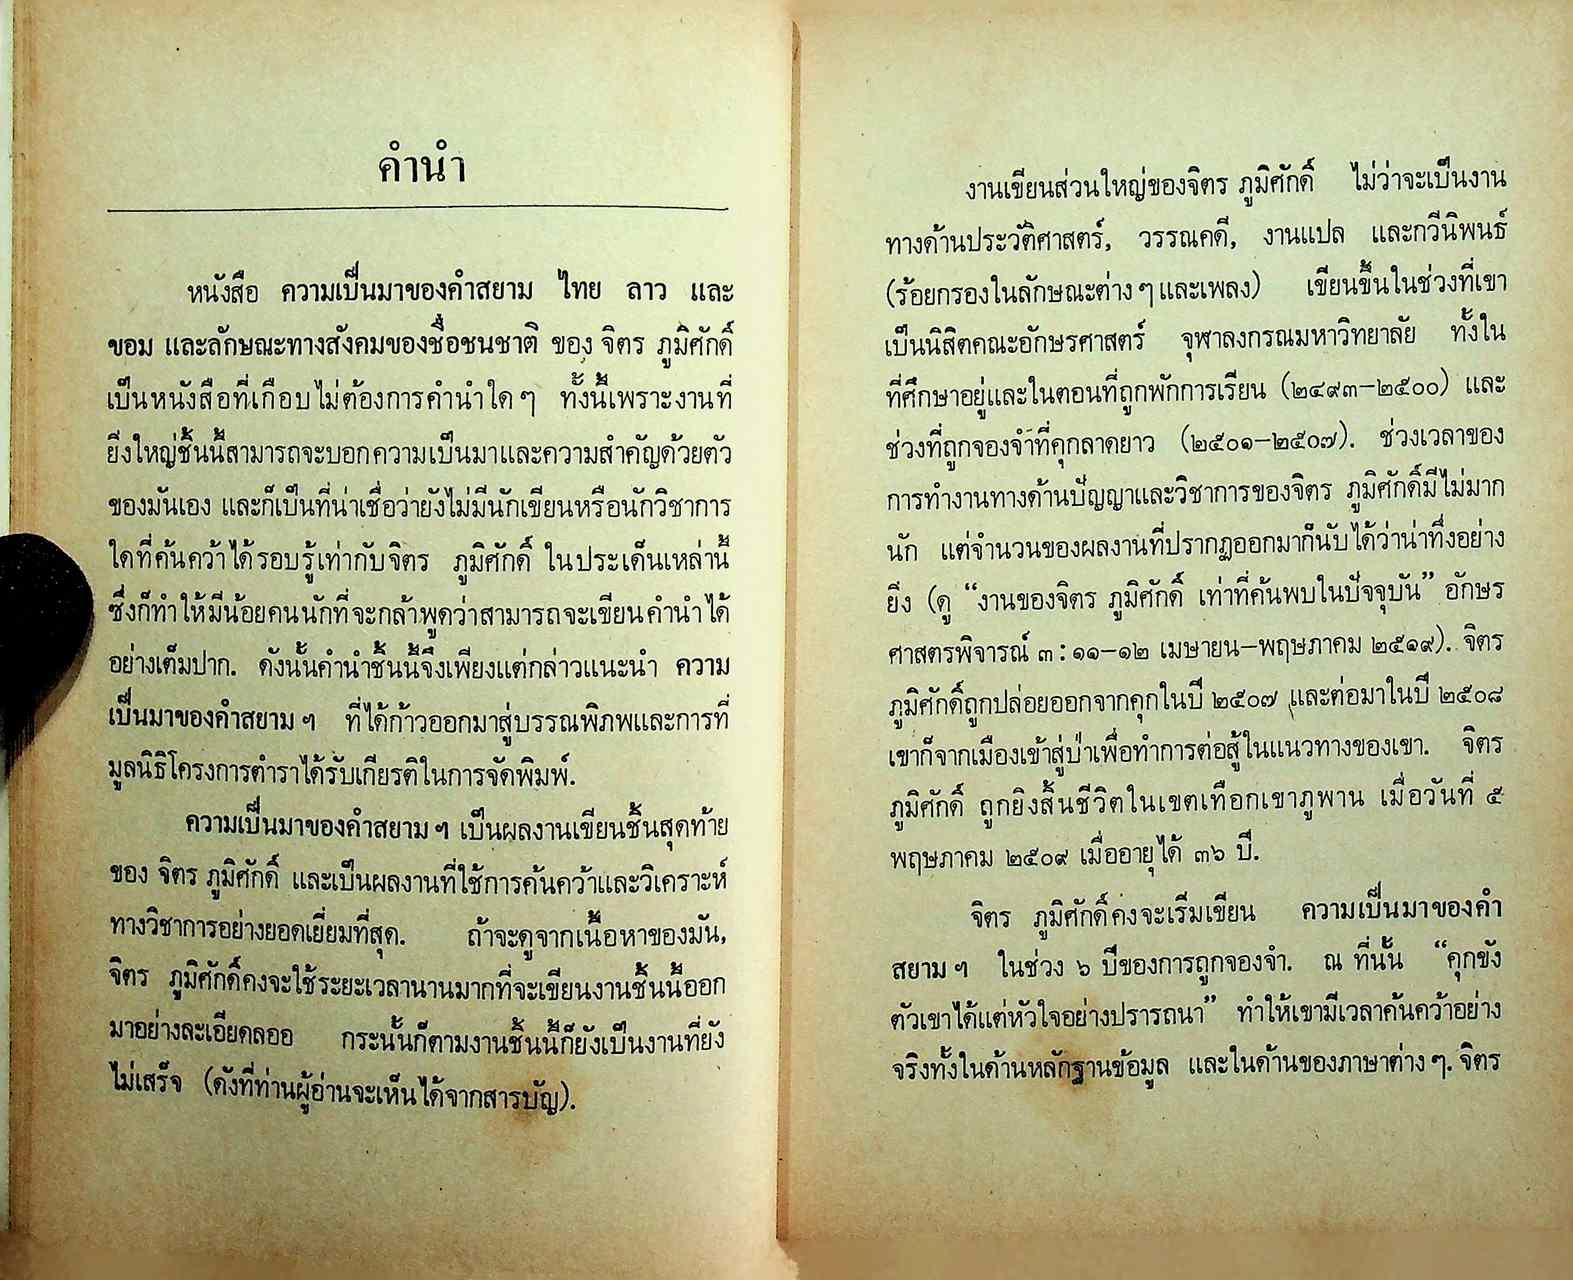 คำนำ
หนังสือ ความเป็นมาของคำสยาม ไทย ลาว และ
ขอม และลักษณะทางสังคมของชื่อชนชาติ ของ จิตร ภูมิศักดิ์
เป็นหนังสือที่เกือบไม่ต้องการคำนำใด ๆ ทั้งนี้เพราะงานที่
ยิ่งใหญ่ชิ้นนี้สามารถจะบอกความเป็นมาและความสำคัญด้วยตัว
ของมันเอง และก็เป็นที่น่าเชื่อว่ายังไม่มีนักเขียนหรือนักวิชาการ
ใดที่ค้นคว้าได้รอบรู้เท่ากับจิตร ภูมิศักดิ์ ในประเด็นเหล่านี้
ซึ่งก็ทำให้มีน้อยคนนักที่จะกล้าพูดว่าสามารถจะเขียนคำนำได้
อย่างเต็มปาก. ดังนั้นคำนำชิ้นนี้จึงเพียงแต่กล่าวแนะนำ ความ
เป็นมาของคำสยาม ฯ ที่ได้ก้าวออกมาสู่บรรณพิภพและการที่
มูลนิธิโครงการตำราได้รับเกียรติในการจัดพิมพ์.
ความเป็นมาของคำสยาม ฯ เป็นผลงานเขียนชิ้นสุดท้าย
ของ จิตร ภูมิศักดิ์ และเป็นผลงานที่ใช้การค้นคว้าและวิเคราะห์
ทางวิชาการอย่างยอดเยี่ยมที่สุด. ถ้าจะดูจากเนื้อหาของมัน,
จิตร ภูมิศักดิ์คงจะใช้ระยะเวลานานมากที่จะเขียนงานชิ้นนี้ออก
มาอย่างละเอียดลออ กระนั้นก็ตามงานชิ้นนี้ก็ยังเป็นงานที่ยัง
ไม่เสร็จ (ดังที่ท่านผู้อ่านจะเห็นได้จากสารบัญ).
งานเขียนส่วนใหญ่ของจิตร ภูมิศักดิ์ ไม่ว่าจะเป็นงาน
ทางด้านประวัติศาสตร์, วรรณคดี, งานแปล และกวีนิพนธ์
(ร้อยกรองในลักษณะต่าง ๆ และเพลง) เขียนขึ้นในช่วงที่เขา
เป็นนิสิตคณะอักษรศาสตร์ จุฬาลงกรณมหาวิทยาลัย ทั้งใน
ที่ศึกษาอยู่และในตอนที่ถูกพักการเรียน (๒๔๙๓–๒๕๐๐) และ
ช่วงที่ถูกจองจำที่คุกลาดยาว (๒๕๐๑–๒๕๐๗). ช่วงเวลาของ
การทำงานทางด้านปัญญาและวิชาการของจิตร ภูมิศักดิ์มีไม่มาก
นัก แต่จำนวนของผลงานที่ปรากฏออกมาก็นับได้ว่าน่าทึ่งอย่าง
ยิ่ง (ดู “งานของจิตร ภูมิศักดิ์ เท่าที่ค้นพบในปัจจุบัน” อักษร
ศาสตรพิจารณ์ ๓ : ๑๑–๑๒ เมษายน–พฤษภาคม ๒๕๑๙). จิตร
ภูมิศักดิ์ถูกปล่อยออกจากคุกในปี ๒๕๐๗ และต่อมาในปี ๒๕๐๘
เขาก็จากเมืองเข้าสู่ป่าเพื่อทำการต่อสู้ในแนวทางของเขา. จิตร
ภูมิศักดิ์ ถูกยิงสิ้นชีวิตในเขตเทือกเขาภูพาน เมื่อวันที่ ๕
พฤษภาคม ๒๕๐๙ เมื่ออายุได้ ๓๖ ปี.
จิตร ภูมิศักดิ์คงจะเริ่มเขียน ความเป็นมาของคำ
สยาม ฯ ในช่วง ๖ ปีของการถูกจองจำ. ณ ที่นั้น “คุกขัง
ตัวเขาได้แต่หัวใจอย่างปรารถนา” ทำให้เขามีเวลาค้นคว้าอย่าง
จริงทั้งในด้านหลักฐานข้อมูล และในด้านของภาษาต่าง ๆ. จิตร